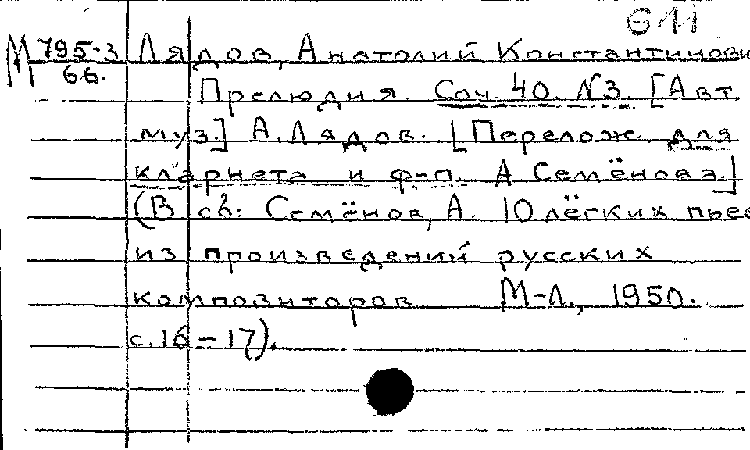 611
М 795-3 Лядов, Анатолий Константинови
66. Прелюдия Соч. 40. №3. [Авт.
муз.] А. Лядов. [Перелож. для
кларнета и ф-п. А Семёнова.]
(В сб: Семёнов, А. 10 лёгких пьес
из произведений русских
композиторов М-Л., 1950.
с. 16-17).